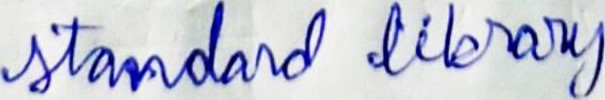 standard library